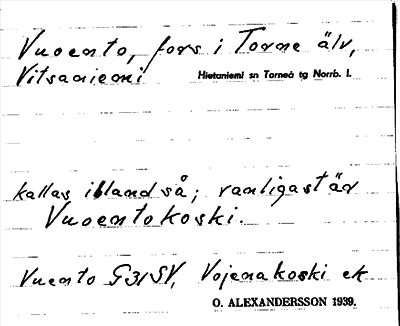 Vuoento, fors i Torne älv,
Vitsaniemi Hietaniemi sn Torneå tg Norrb. l.
kallas ibland så; vanligast är
Vuoentokoski.
Vuento G31SV, Vojenakoski ek
O. ALEXANDERSSON 1939.